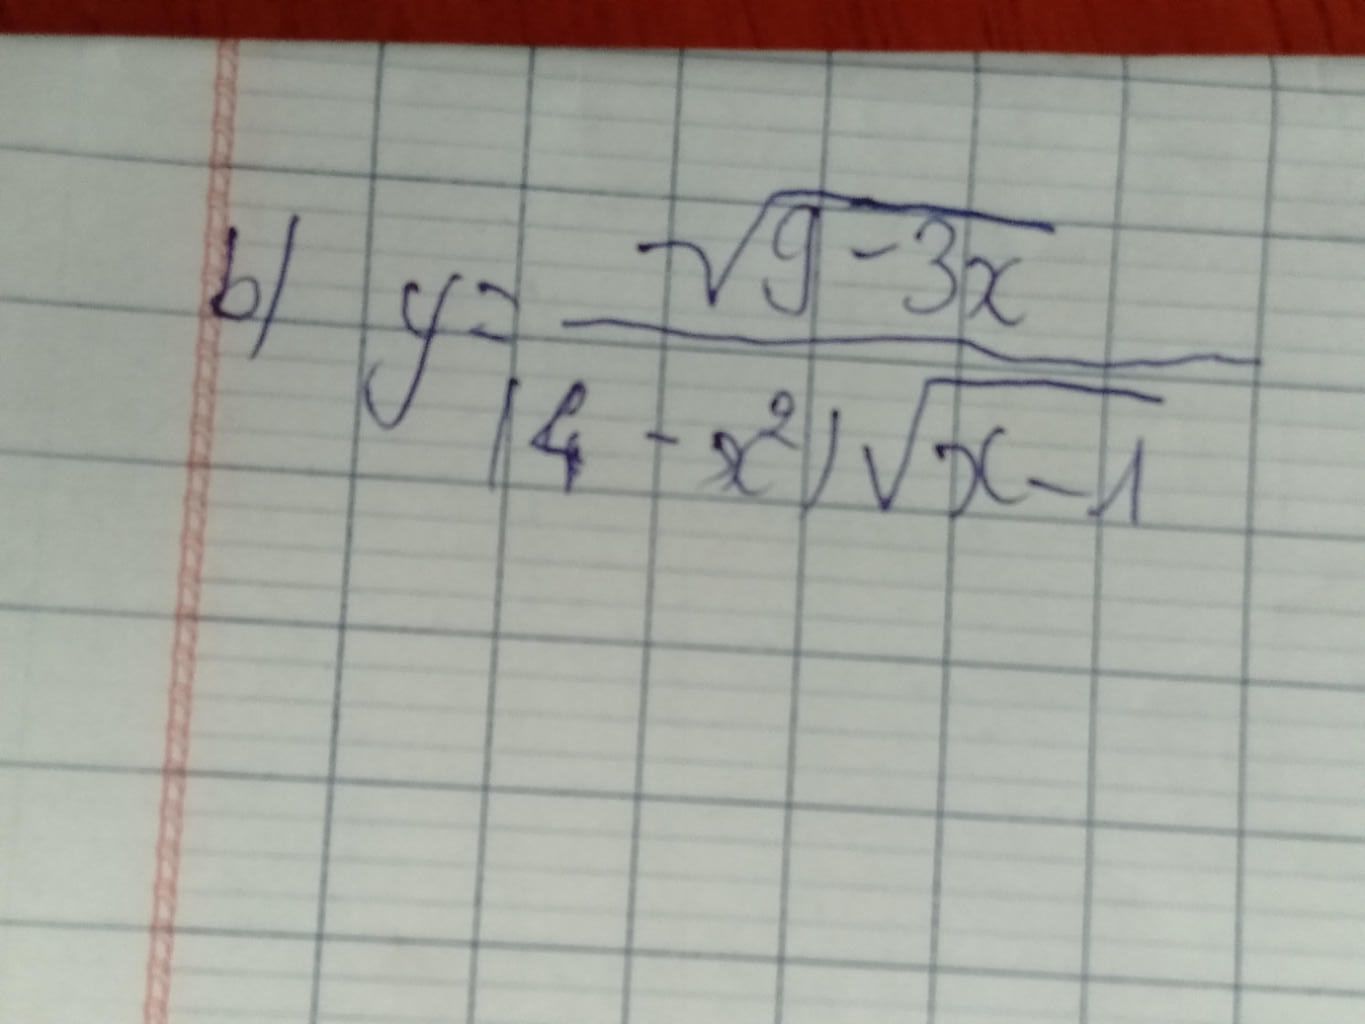 b/ y = \frac{\sqrt{9 - 3x}}{(4 - x^2)\sqrt{x - 1}}